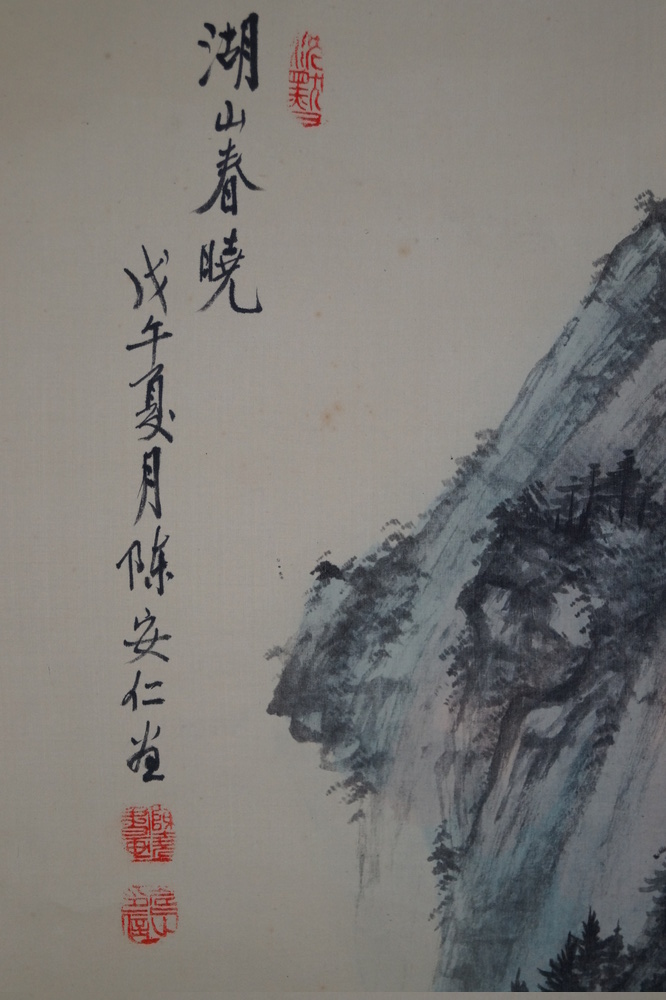 湖山春曉
戊午夏月陈安仁画